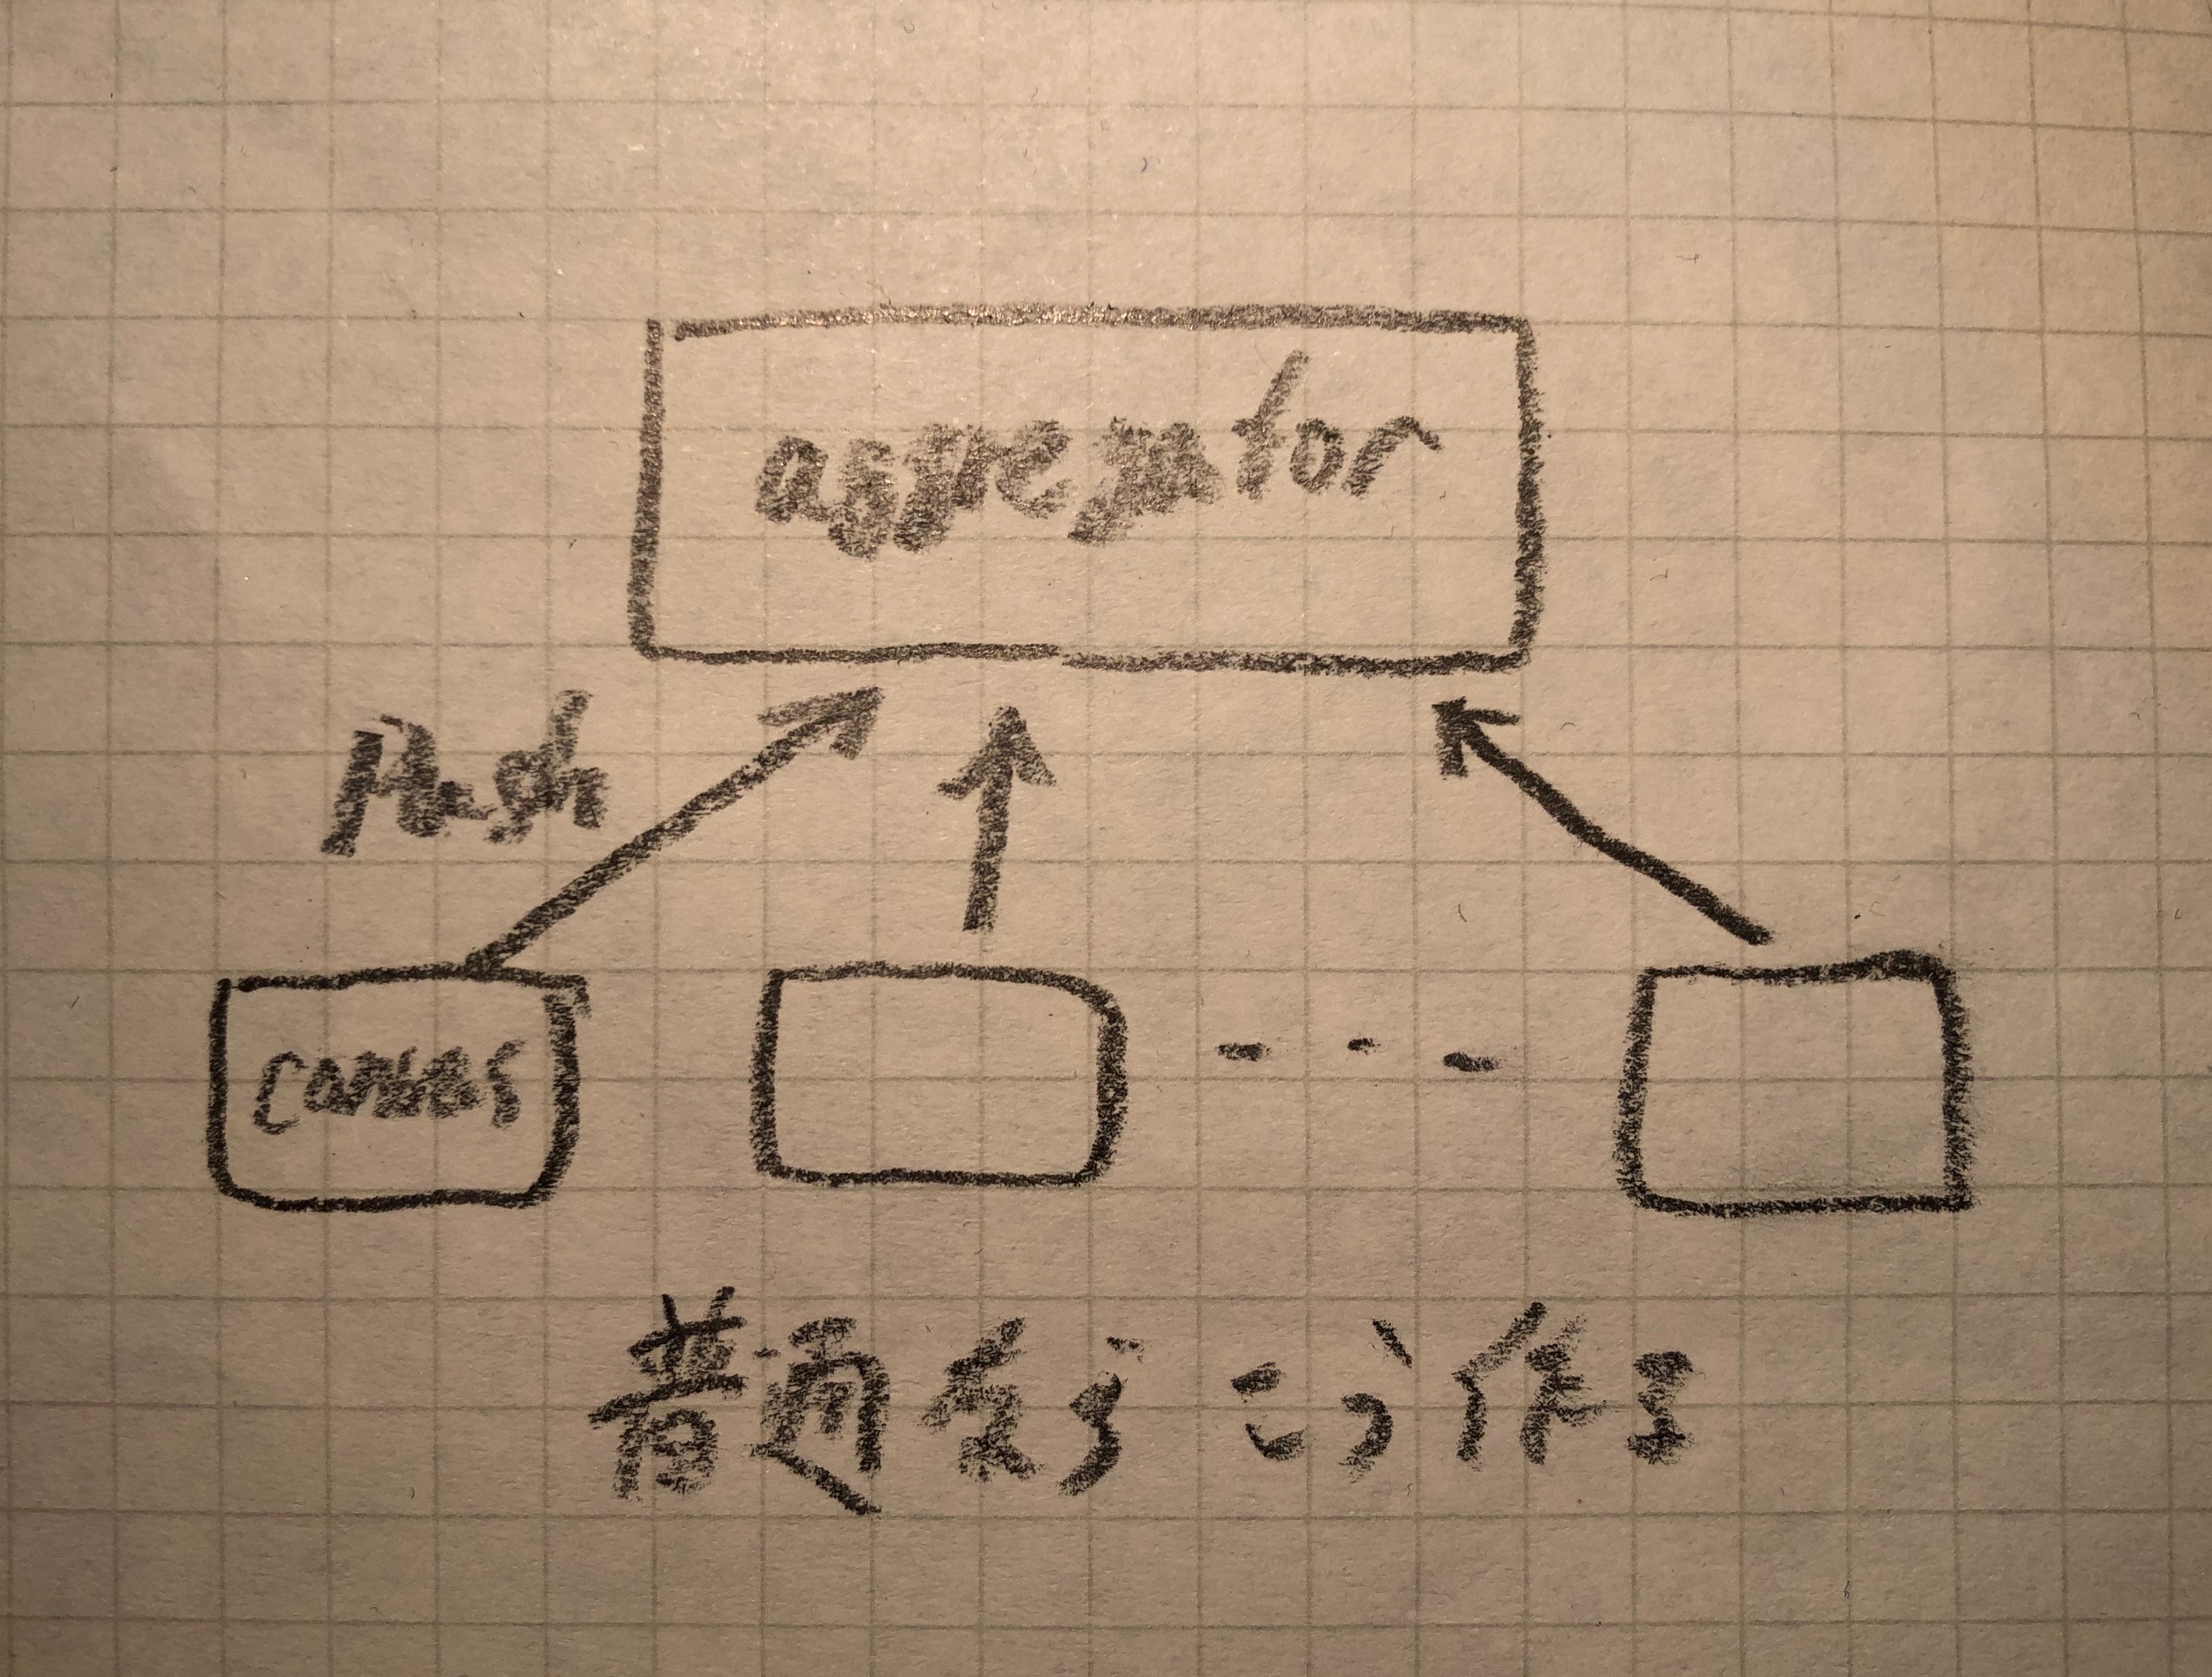 aggregator
Push
canvas
普通ならこう作る